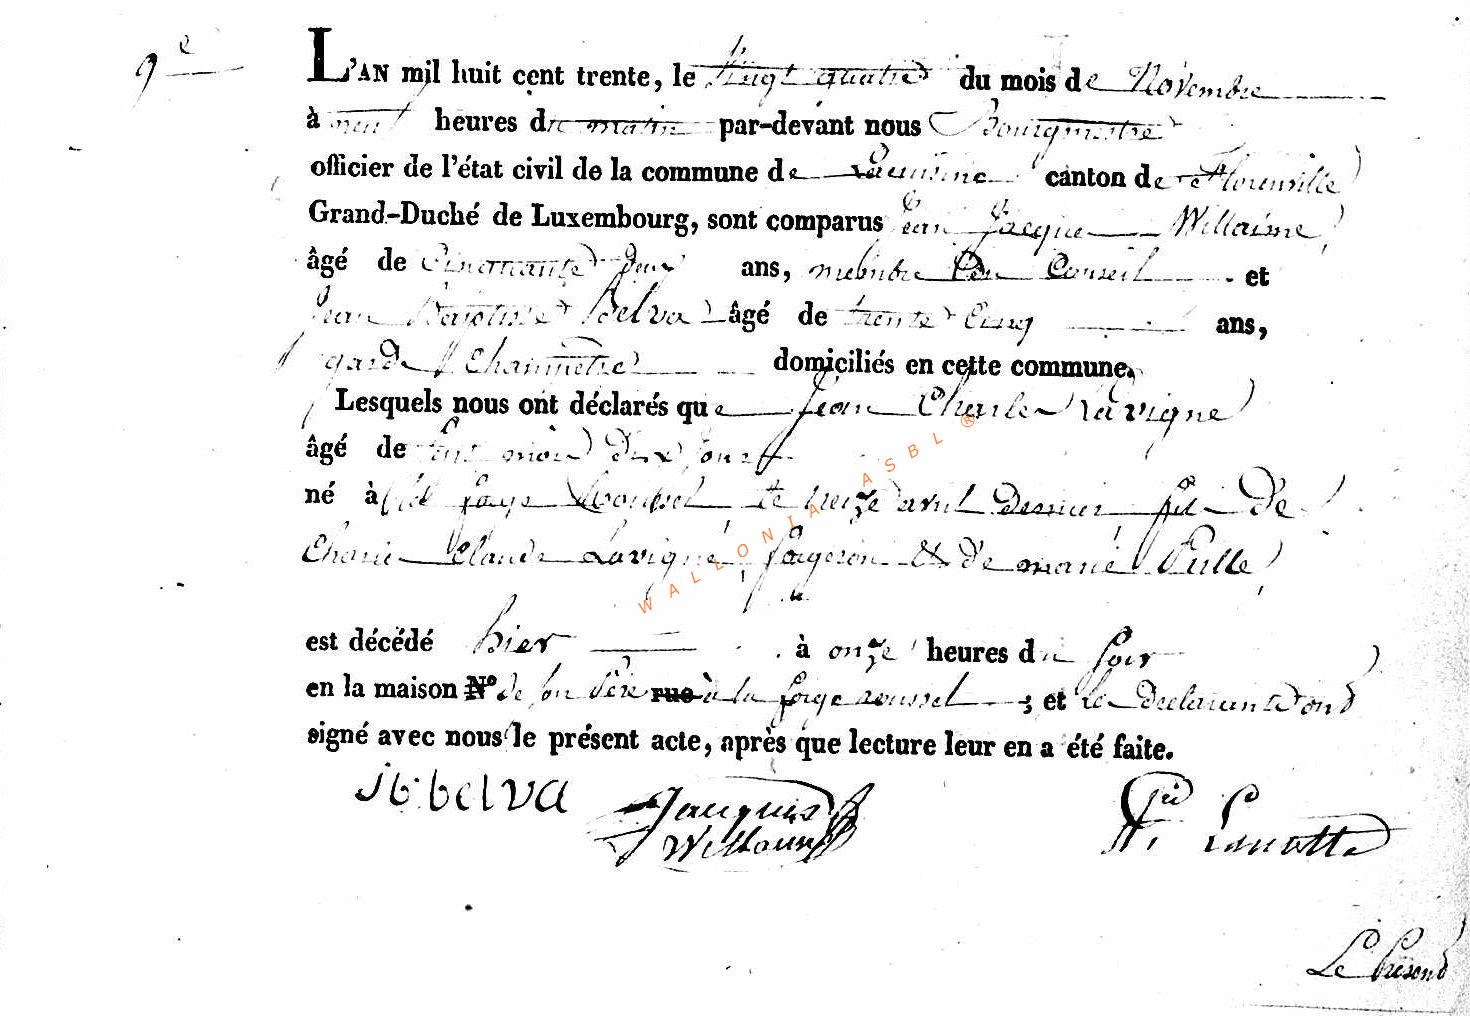 9e
L'AN mil huit cent trente, le vingt quatre du mois de Novembre
à neuf heures du matin par-devant nous Bourgmestre
officier de l'état civil de la commune de Lacuisine canton de Florenville
Grand-Duché de Luxembourg, sont comparus Jean Jacque Willaime,
âgé de Cinquante deux ans, membre du Conseil et
Jean Baptiste Belva âgé de trente Cinq ans,
garde Champêtre domiciliés en cette commune.
Lesquels nous ont déclarés que Jean Charle Lavigne
âgé de sept mois dix jours
né à la forge Roussel, le treize avril dernier, fils de
Charle Claude Lavigne, forgeron & de marie Pille,
est décédé hier à onze heures du soir
en la maison N° de son Père rue à la forge roussel ; et les declarants ont
signé avec nous le présent acte, après que lecture leur en a été faite.
J b. belva
Jacques Willaime
Lanotte
Le Present
WALLONIA ASBL ®